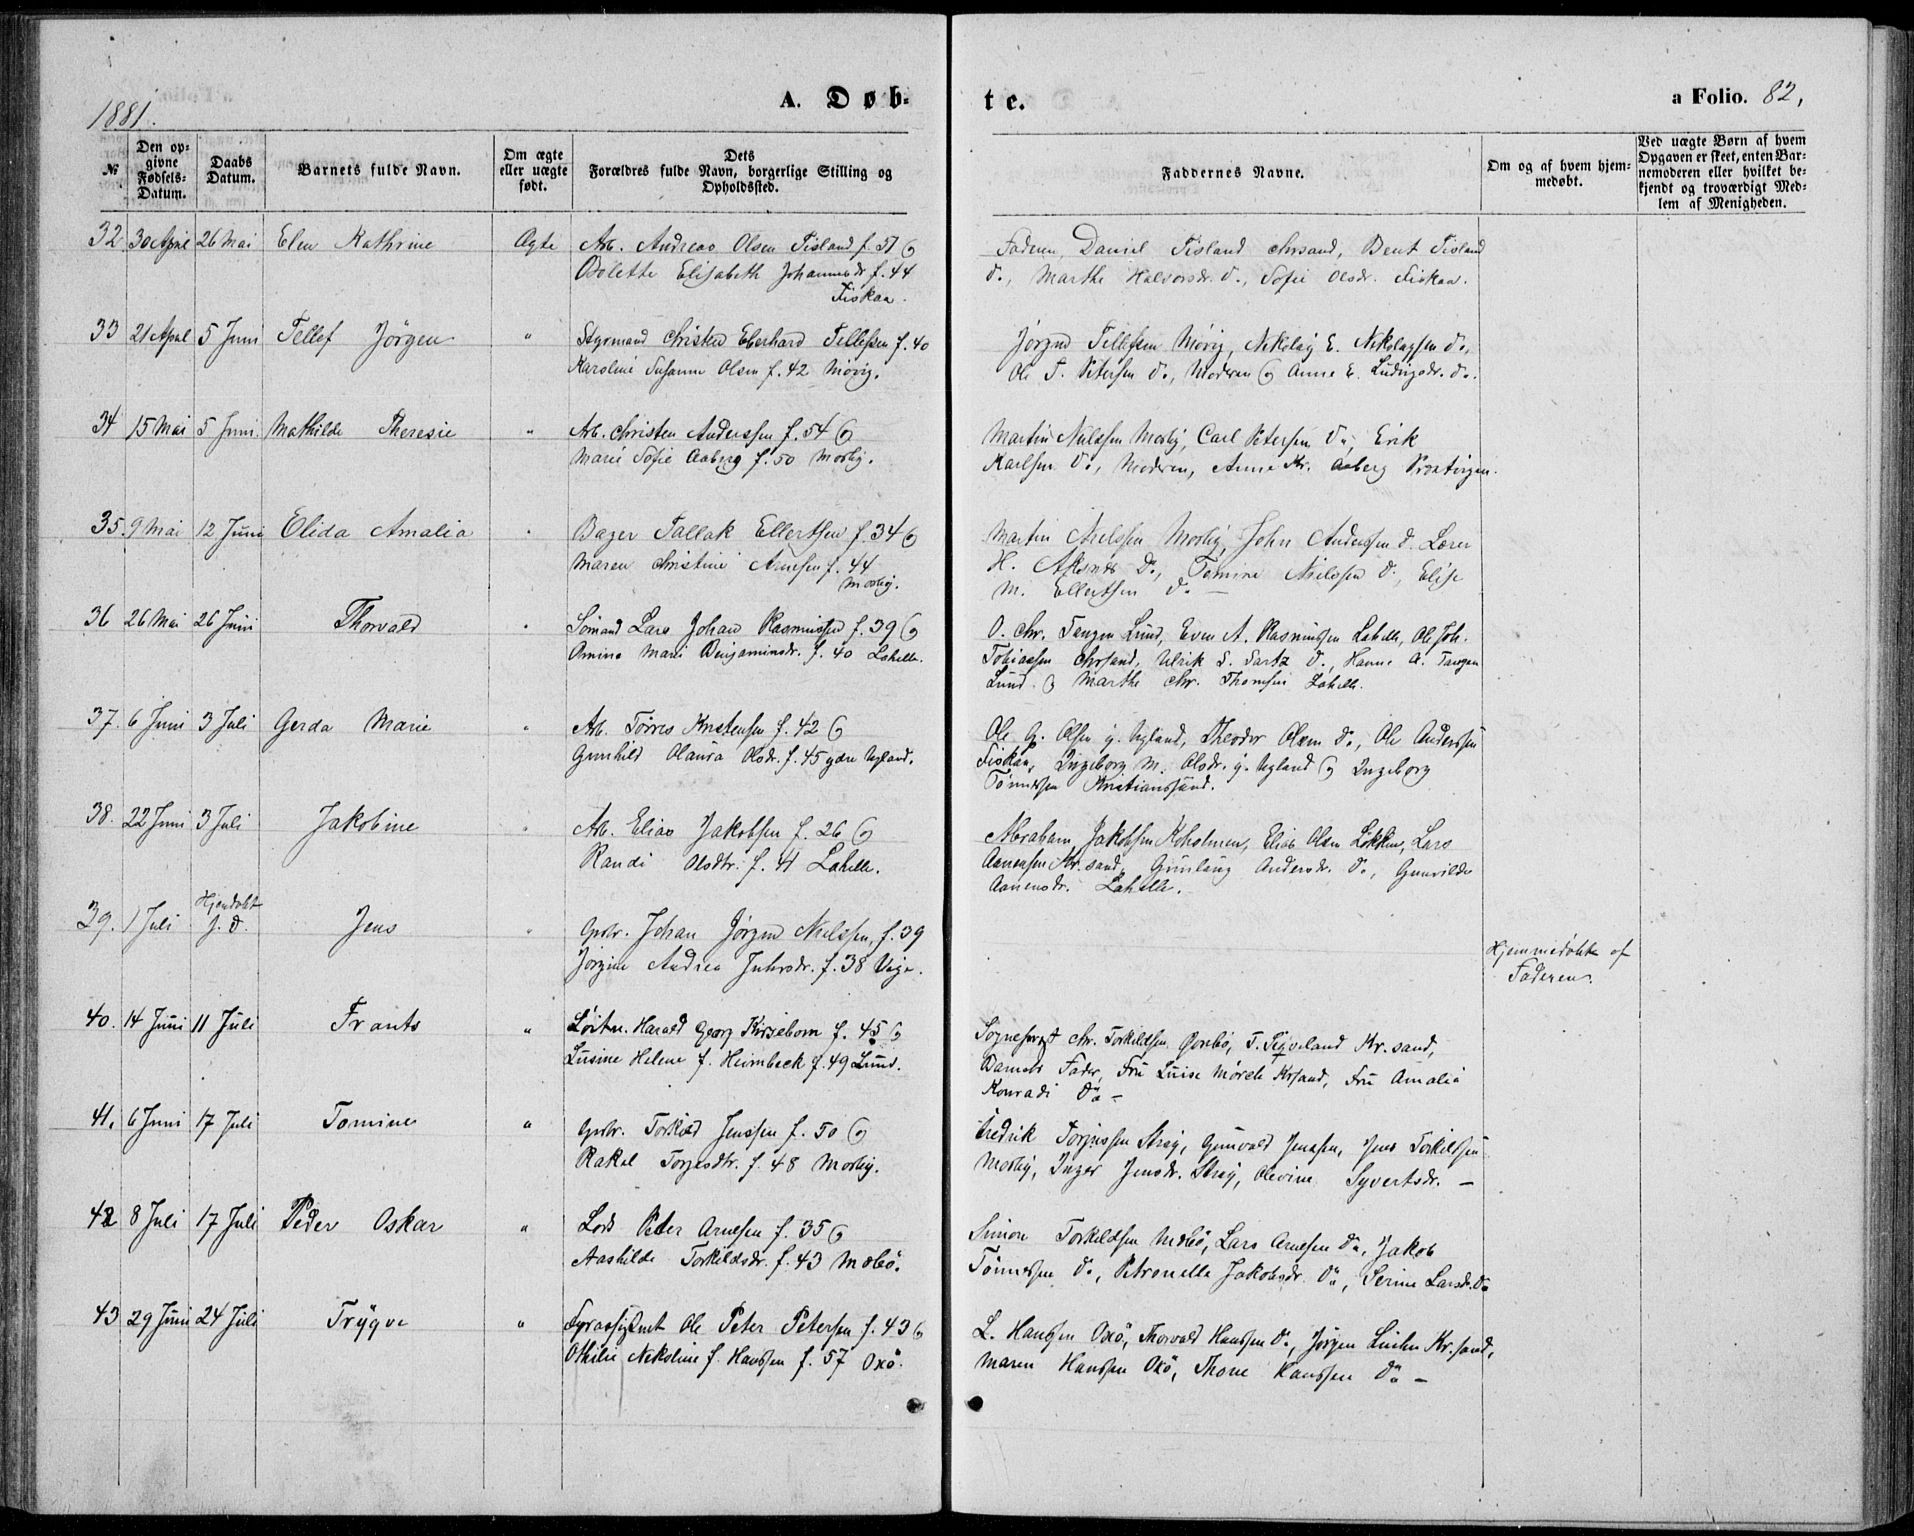 1881.
A. Døb-
te.
a Folio. 82.
№
Den opgivne Fødsels-Datum.
Daabs Datum.
Barnets fulde Navn.
Om ægte eller uægte født.
Dets Forældres fulde Navn, borgerlige Stilling og Opholdssted.
Faddernes Navne.
Om og af hvem hjemmedøbt.
Ved uægte Børn af hvem Opgaven er skeet, enten Barnemoderen eller hvilket bekjendt og troværdigt Medlem af Menigheden.
32 30 April 26 Mai Elen Kathrine Ægte Arb. Andreas Olsen Fisland f. 51 og
Bolette Elisabeth Johannesdr f. 44
Fiskaa.
Faderen, Daniel Fisland Chrsand, Bent Fisland
do, Marthe Halvorsdr. do, Sofie Olsdr. Fiskaa.
33 21 April 5 Juni Tellef Jörgen " Styrmand Christen Eberhard Tellefsen f. 40
Karoline Susanne Olsen f. 42 Møvig.
Jörgen Tellefsen Møvig, Nikolay E. Nikolaysen do,
Ole T. Petersen do, Moderen og Anne E. Ludvigsdr. do.
34 15 Mai 5 Juni Mathilde Theresie " Arb. Christen Anderssen f. 54 og
Marie Sofie Aaberg f. 50 Mosby.
Martin Nielssen Mosby, Carl Petersen do, Erik
Karlsen do, Moderen, Anne Kr. Aaberg
35. 9 Mai 12 Juni Elida Amalia " Bager Tallak Ellertsen f. 34 og
Maren Christine Arnesen f. 44
Mosby.
Martin Nielssen Mosby, John Anderssen do Lærer
H. do, Tomine Nielssen do, Elise
M. Ellertsen do —
36 26 Mai 26 Juni Thorvald " Sømand Lars Johan Rasmussen f. 39 og
Amine Marie Benjaminsdr. f. 40 Lahelle.
O. Chr. Tangen Lund, Even A. Rasmussen Lahelle, Ole Joh.
Tobiassen Chrsand, Ulrik S. Sartz do, Hanne A. Tangen
Lund og Marthe Chr. Thomsen Lahelle.
37. 6 Juni 3 Juli Gerda Marie " Arb. Tørres Kristensen f. 42 og
Gunhild Olaura Olsdr. f. 45 ydre Ugland.
Ole G. Olsen y. Ugland, Theodor Olsen do, Ole Anderssen
Fiskaa, Ingeborg M. Olsdr. y. Ugland og Ingeborg
Tønnessen Kristianssand.
38. 22 Juni 3 Juli Jakobine " Arb. Elias Jakobsen f. 26 og
Randi Olsdtr. f. 41 Lahelle.
Abraham Jakobsen Koholmen, Elias Olsen Løkken, Lars
Aanensen Kr.sand, Gunlaug Andersdr. do, Gunvilde
Aanensdr. Lahelle.
39. 1 Juli Hjemdøbt s. D. Jens " Gbr. Johan Jørgen Nielssen, f. 39
Jörgine Andrea Juhrsdr. f. 38 Vige.
Hjemmedøbt af
Faderen.
40. 14 Juni 11 Juli Frants " Løitn. Harald Georg Kirsebom f. 45 og
Lusine Helene f. Heimbeck f. 49 Lund.
Sogneprest Chr. Torkildsen T. Tveland Kr.sand,
Barnets Fader, Fru Luise Mörch Krsand, Fru Amalia
Konradi do —
41. 6 Juni 17 Juli Tomine " Gbr. Torkild Jenssen f. 50 og
Rakel Torjusdtr. f. 48 Mosby.
Fredrik Torjussen Stray, Gunvald Jenssen, Jens Torkildsen
Mosby, Inger Jensdr. Stray, Olevine Syvertsdr. —
42 8 Juli 17 Juli Peder Oskar " Lods Peter Arnesen f. 35 og
Aashilde Torkildsdr. f. 43 Mebö.
Simon Torkildsen Mebö, Lars Arnesen do, Jakob
Tönnessen do, Petronella Jakobsdr. do, Serine Larsdr. do
43 29 Juni 24 Juli Trygve " Fyrassistent Ole Peter Petersen f. 43 og
Othilie Nikoline f. Hanssen f. 57 Oxö.
L. Hanssen Oxö, Thorvald Hanssen do, Jørgen Kr.sand,
Maren Hanssen Oxö, Thone Hanssen do —